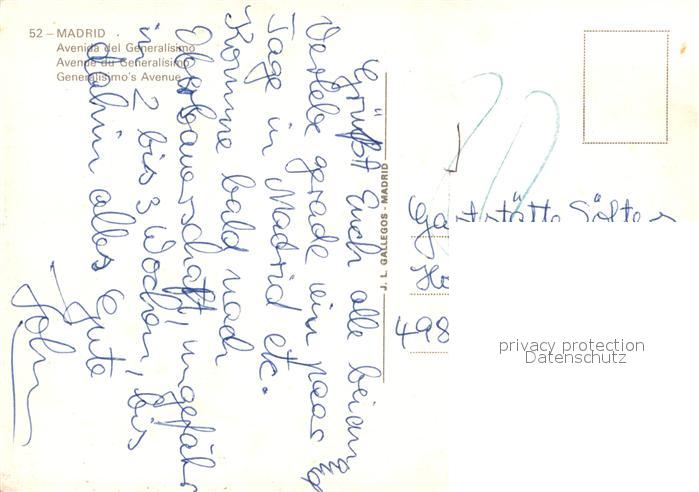 52 – MADRID
Avenida del Generalísimo
Avenue du Generalísimo
Generalísimo's Avenue
J. L. GALLEGOS - MADRID
Grüßt Euch alle
Verlebe gerade ein paar
Tage in Madrid etc.
Komme bald nach
ungefähr
in 2 bis 3 Wochen, bis
dahin alles Gute
John
498
privacy protection
Datenschutz